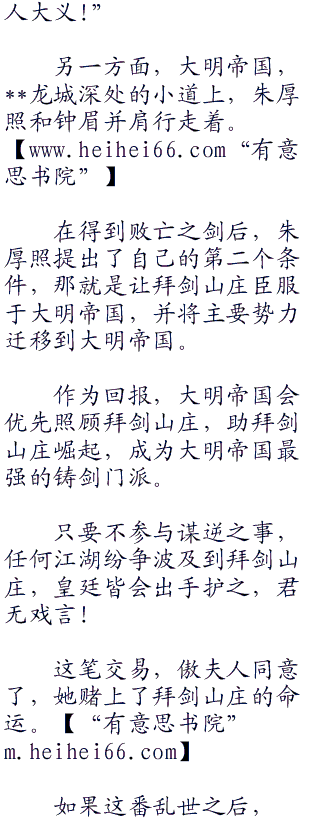 人大义！”
另一方面，大明帝国，
**龙城深处的小道上，朱厚
照和钟眉并肩行走着。
【www.heihei66.com“有意
思书院”】
在得到败亡之剑后，朱
厚照提出了自己的第二个条
件，那就是让拜剑山庄臣服
于大明帝国，并将主要势力
迁移到大明帝国。
作为回报，大明帝国会
优先照顾拜剑山庄，助拜剑
山庄崛起，成为大明帝国最
强的铸剑门派。
只要不参与谋逆之事，
任何江湖纷争波及到拜剑山
庄，皇廷皆会出手护之，君
无戏言！
这笔交易，傲夫人同意
了，她赌上了拜剑山庄的命
运。【“有意思书院”
m.heihei66.com】
如果这番乱世之后，